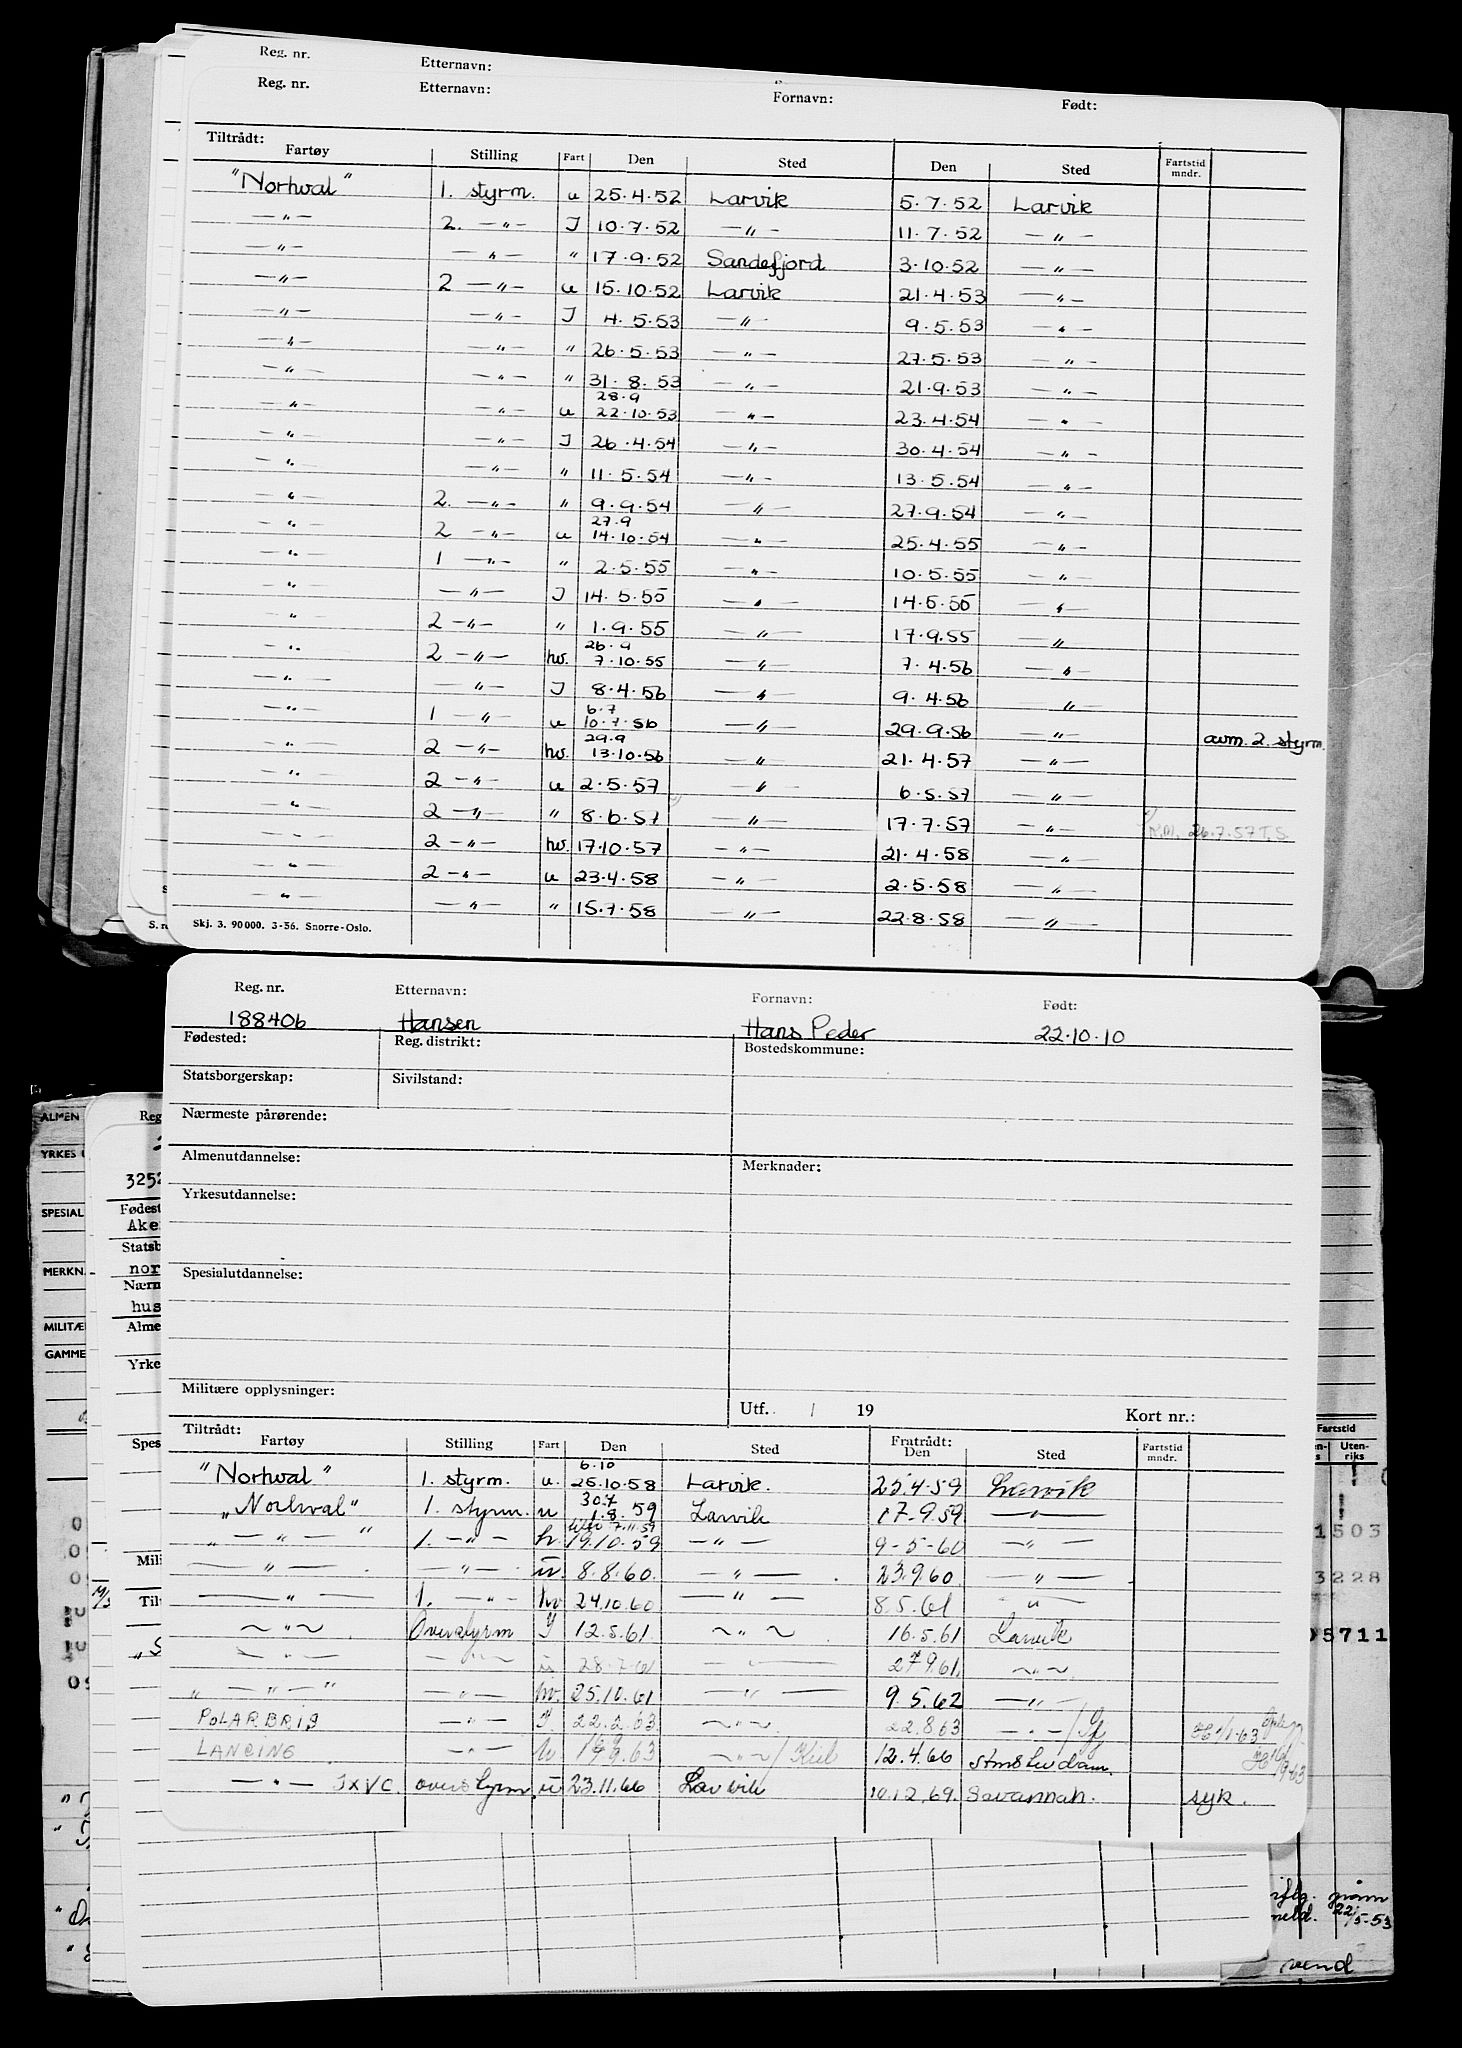 Reg. nr. Etternavn:
Reg. nr. Etternavn: Fornavn: Født:
Tiltrådt:
Fartøy Stilling Fart Den Sted Den Sted Fartstid mndr.
"Norhval" 1. styrm. u 25.4.52 Larvik 5.7.52 Larvik
—"— 2. —"— J 10.7.52 —"— 11.7.52 —"—
—"— —"— " 17.9.52 Sandefjord 3.10.52 —"—
—"— 2 —"— u 15.10.52 Larvik 21.4.53 —"—
—"— —"— J 4.5.53 —"— 9.5.53 —"—
—"— —"— " 26.5.53 —"— 27.5.53 —"—
—"— —"— " 31.8.53 —"— 21.9.53 —"—
28.9
—"— —"— u 22.10.53 —"— 23.4.54 —"—
—"— —"— J 26.4.54 —"— 30.4.54 —"—
—"— —"— " 11.5.54 —"— 13.5.54 —"—
—"— 2. —"— " 9.9.54 —"— 27.9.54 —"—
27.9
—"— 2 —"— u 14.10.54 —"— 25.4.55 —"—
—"— 1 —"— " 2.5.55 —"— 10.5.55 —"—
—"— —"— J 14.5.55 —"— 14.5.55 —"—
—"— 2 —"— " 1.9.55 —"— 17.9.55 —"—
26.9
—"— 2 —"— hv. 7.10.55 —"— 7.4.56 —"—
—"— —"— J 8.4.56 —"— 9.4.56 —"—
6.7
—"— 1 —"— u 10.7.56 —"— 29.9.56 —"— avm. 2. styrm.
29.9
—"— 2 —"— hv. 13.10.56 —"— 21.4.57 —"—
—"— 2 —"— u 2.5.57 —"— 6.5.57 —"—
—"— 2 —"— " 8.6.57 —"— 17.7.57 —"— 26.7.57 T.S.
—"— 2 —"— hv. 17.10.57 —"— 21.4.58 —"—
—"— 2 —"— u 23.4.58 —"— 2.5.58 —"—
—"— —"— " 15.7.58 —"— 22.8.58 —"—
Skj. 3. 90000. 3-56. Snorre-Oslo.
Reg. nr. Etternavn: Fornavn: Født:
188406 Hansen Hans Peder 22.10.10
Fødested: Reg. distrikt: Bostedskommune:
Statsborgerskap: Sivilstand:
Nærmeste pårørende:
Almenutdannelse: Merknader:
Yrkesutdannelse:
Spesialutdannelse:
Militære opplysninger:
Utf. / 19 Kort nr.:
Tiltrådt: Fratrådt:
Fartøy Stilling Fart Den Sted Den Sted Fartstid mndr.
6.10
"Norhval" 1. styrm. u. 25.10.58 Larvik. 25.4.59 Larvik
30.7
"Norhval" 1. styrm. u 1.8.59 Larvik 17.9.59 —"—
7.11.59
" —"— " 1. —"— h. 19.10.59 —"— 9-5-60 —"—
—"— —"— u. 8.8.60. —"— 23.9.60. —"—
—"— 1. —"— hv 24.10.60 —"— 8.5.61 —"—
—"— Overstyrm J 12.5.61. —"— 16.5.61 Larvik
—"— —"— u 28.7.61 —"— 27.9.61. —"—
" —"— " —"— hv. 25.10.61 —"— 9.5.62 —"—
POLARBRIS —"— J. 22.2.63. —"— 22.8.63 —"—
LANCING —"— u. 19.9.63 —"—/Kiel 12.4.66 Amsterdam.
—"— JXVC. overstyrm. u 23.11.66 Larvik 10.12.69. Savannah. syk.
ALMEN
YRKES
SPESIAL
MERKN.
MILITÆ
GAMME
Reg
3252
Fødest
Ake
Statsb
nor
Nærm
hus
Alme
Yrke
Spes
Mili
Til
Fartstid
Uten-
riks
1503
3228
05711
22/5-53
vend